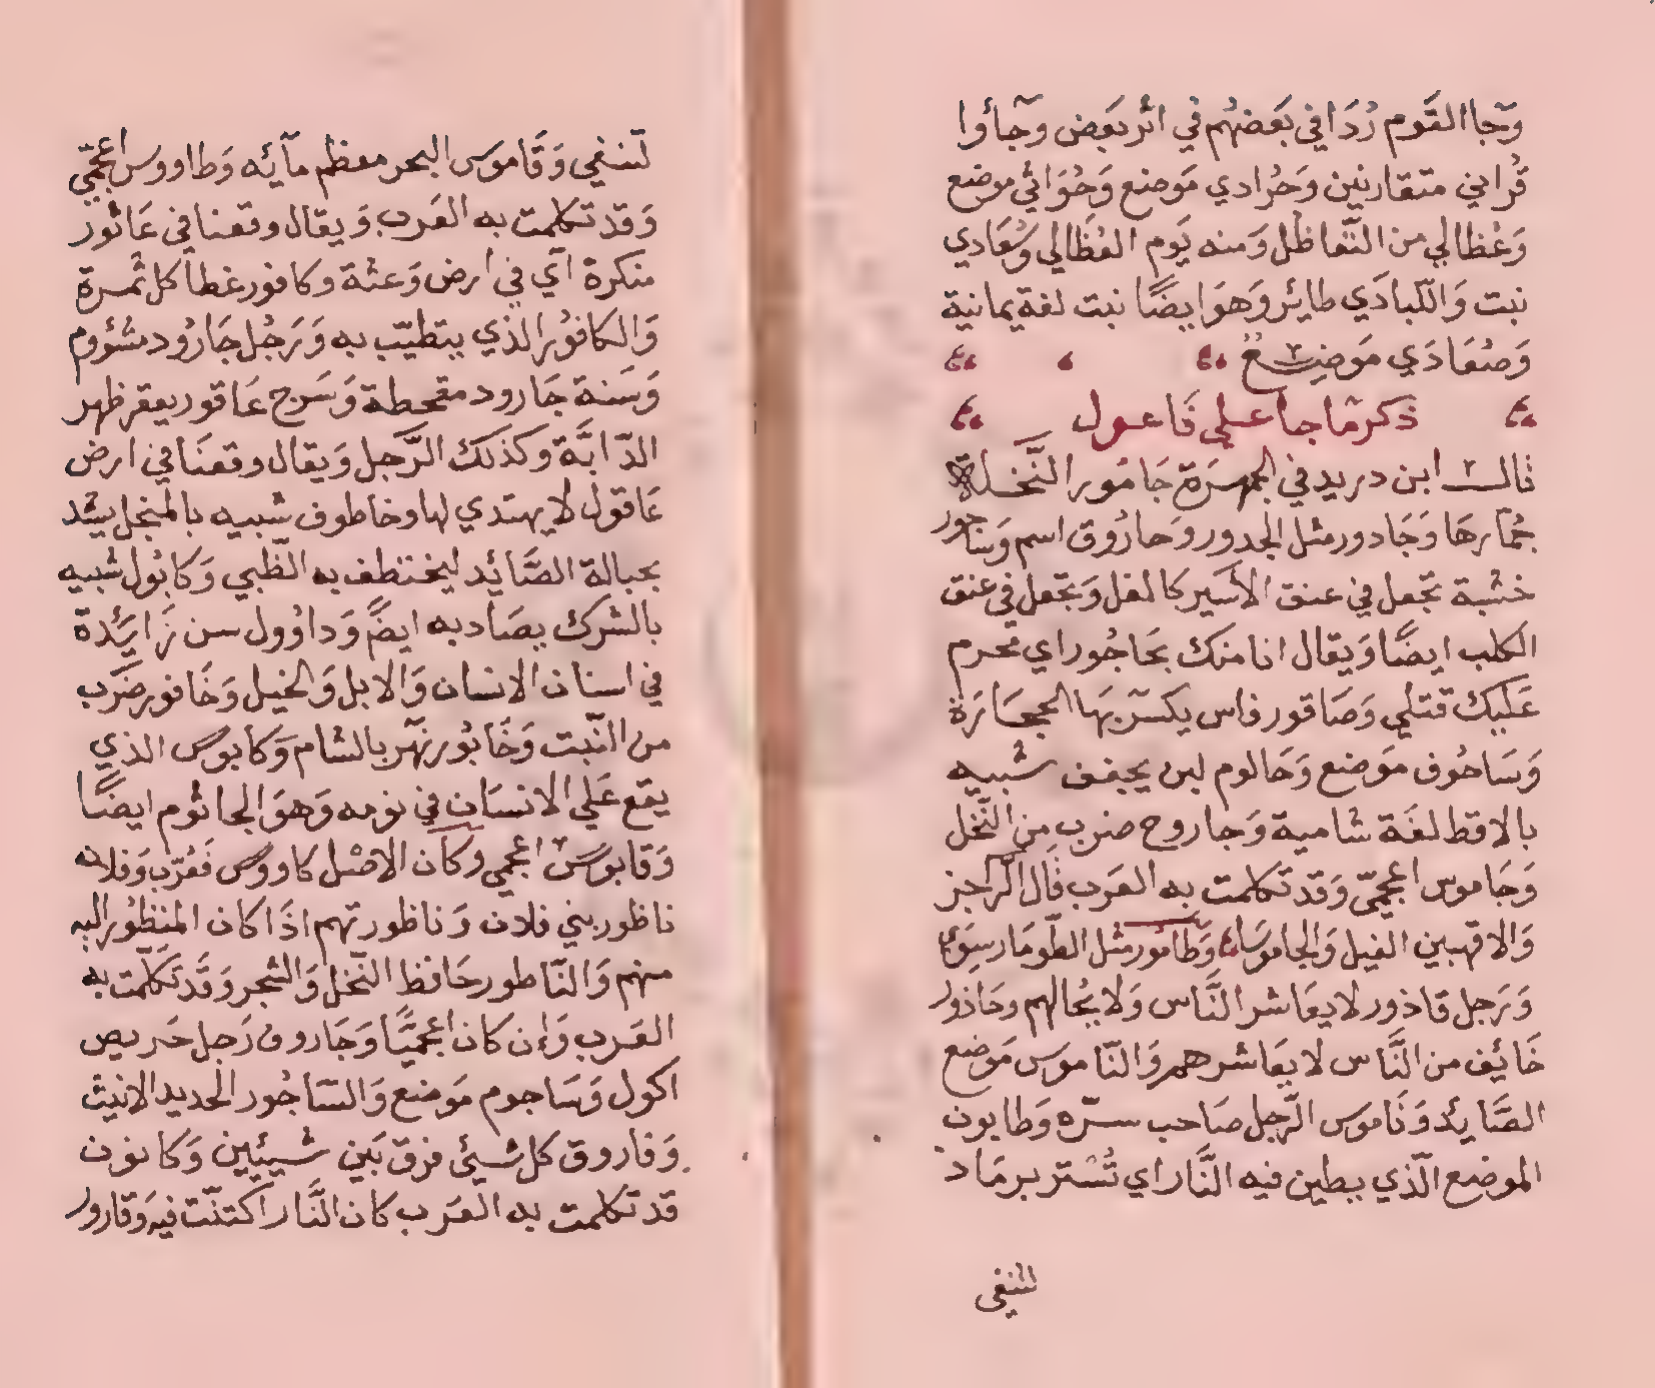 وجا القوم رُدَافي بَعضهُم في اثر بَعض وجاؤا
قُراني متقارنين وَحُرادي مَوضع وَحُوَائي موضع
وَعُظالي من التّعاظل وَمنه يَوم العُظَالي وَسُعَادي
نبت وَاللّبادَي طايئر وَهوَ ايضًا نبت لغة يمانية
وَصُعَادَي مَوضِع
ذكر مَا جا علي فَاعول
قال ابن دريد في الجمهرَة جَامُور النَّخلة
جُمّارهَا وَجَادور مثل الجدور وَحارُوق اسم وَسَاجور
خشبة تجّعل في عنق الأسَير كالغل وَتجّعل في عنق
الكلب ايضًا وَيقال انا منك بحَاجُور اي محرم
عَليك قتلي وَصَاقور فاس يكسّر بهَا الحجَارَة
وَسَاحُوف مَوضع وَحَالوم لبن يجفف شبيه
بالاقط لغَة شامية وَجاروح ضرب مِن النّخل
وَجَاموس اعجميّ وَقد تكلمت به العَرب قال الرّاجز
وَالاقهبين الفيل وَالجاموسَا وَطامُور مثل الطّومَار سِوَي
وَرَجل قاذور لا يعَاشر النَّاس وَلا يُخالهم وحَاذور
خَائِف من النَّاس لا يعَاشرهم وَالنّاموَس مَوضع
الصَّايئد وَنَاموس الرّجل صَاحب سرّه وَطابون
الموضع الّذي يبطين فيه النَّار اي تُسْتر برمَاد
لتنغي
لتنغي وَقَاموَس البحر معظم مآئِه وَطاووس اعجميّ
وَقد تكلمت به العَرب وَيقال وقعنا في عَاثور
منكرة آي في ارض وَعثة وكافور غطا كل ثمرة
وَالكافوُر الّذي يتطيّب به وَرَجُل جَارُود مشؤوم
وَسَنة جَارود مقحطة وَسَرج عَاقور يعقر ظهر
الدّابَّة وكذلك الرَّجل وَيقال وقعنَا في ارض
عَاقول لا يهتدي لها وخاطوف شبيه بالمنجل يشد
بحبالة الصَّائِد ليختطف به الظّبي وَكابُول شبيه
بالشرك يصَاد به ايضًا وَداوُول سن زَايئِدة
في اسنان الانسان وَالابل وَالخيل وَخَافور ضَرب
من النّبت وَخَابُور نهّر بالشام وَكابوس الذي
يقع عَلي الانسَان في نومه وَهوَ الجاثوم ايضًا
وَقابوس اعجمي وكان الاصْل كاووس فَعُرّب وَفلان
ناظور بني فلان وَناظورتهم اذَا كان المنظُور اليه
منهم وَالنّاطور حَافظ النّخل وَالشجر وَقَد تكلّمت به
العَرب وَان كان اعجميًّا وَجَاروف رَجل حَريص
اكول وَسَاجوم مَوضع وَالسّاجُور الحديد الانيث
وَفاروق كل شيئ فرق بَين شيئين وَكانون
قد تكلمت به العَرب كان النَّار اكتنّت فيه وَقارور